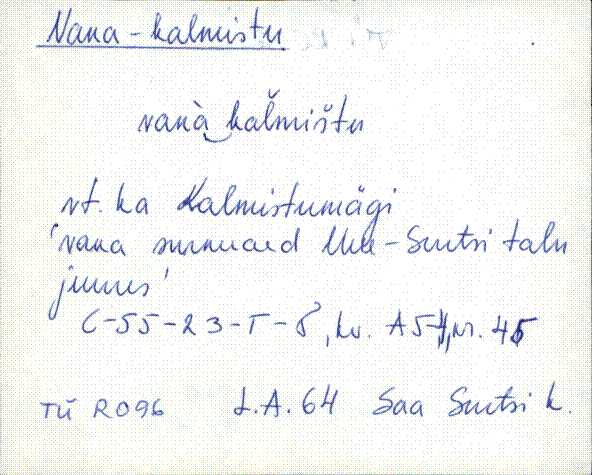 Vana-kalmistu
vanà kaĺmištu
vt. ka Kalmistumägi
'vana surnuaed Uku-Surtsi talu
juures'
C-55-23-T-8, kv. A5-4, nr. 45
TÜ R096 L.A. 64 Saa Surtsi k.